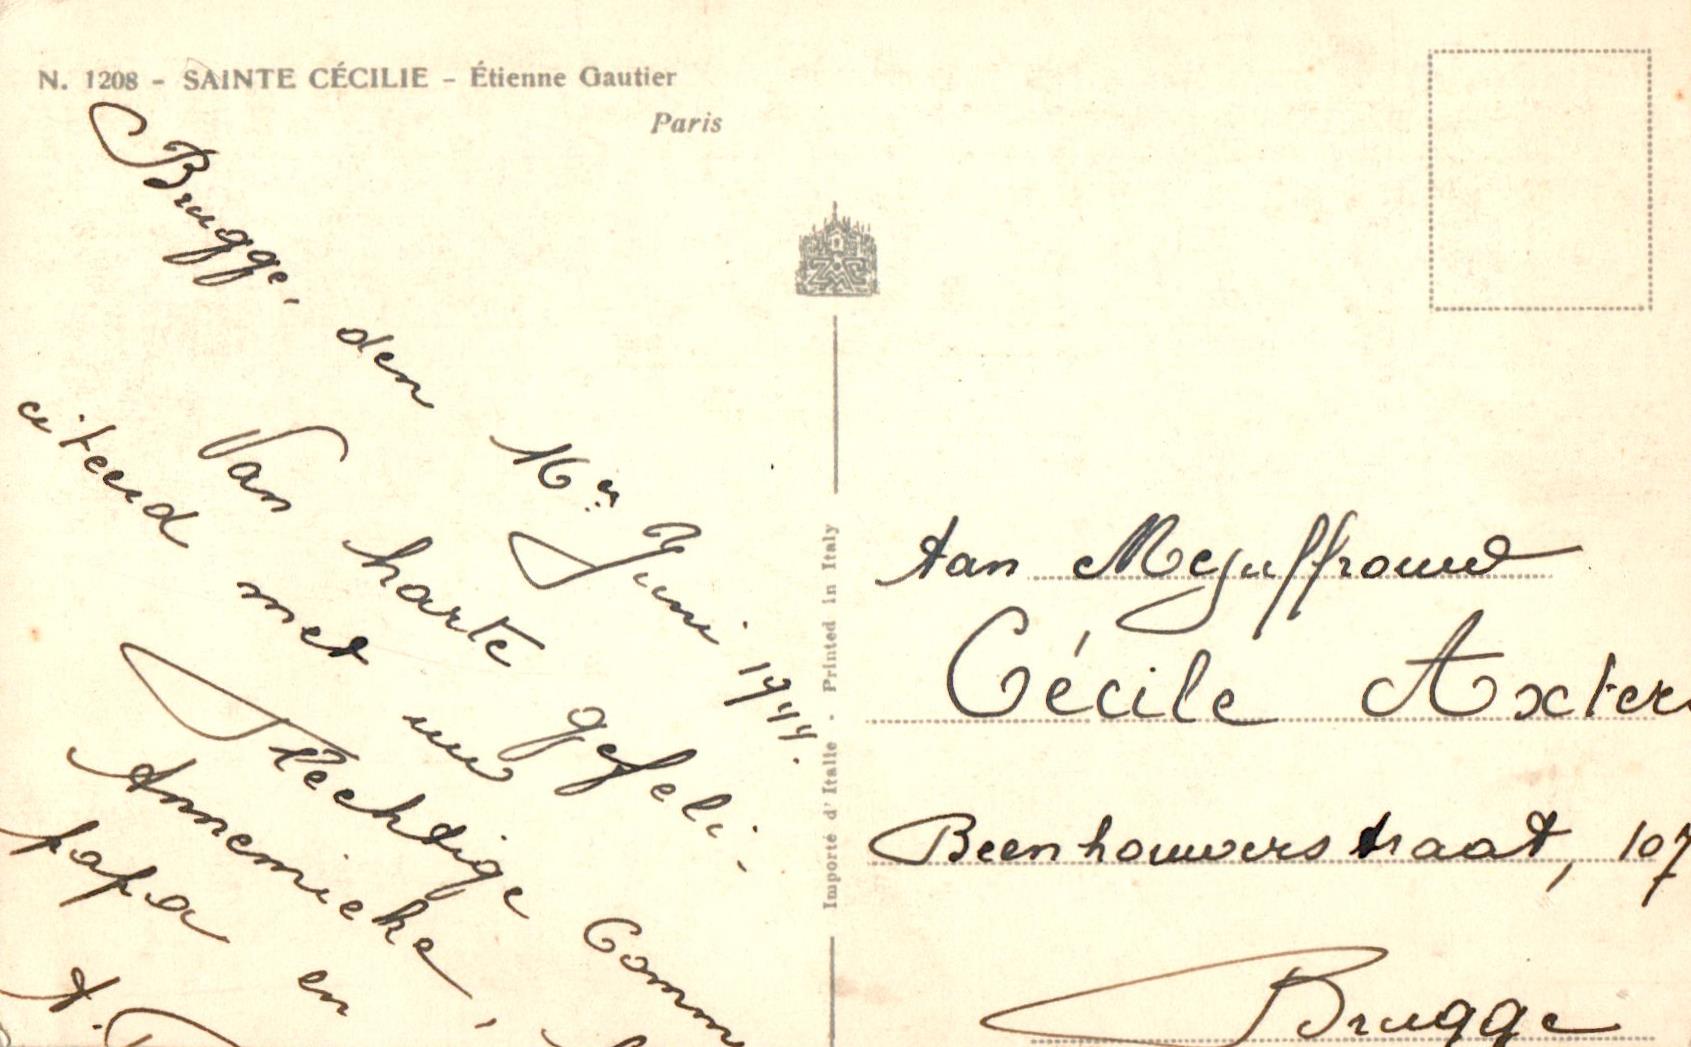 N. 1208 - SAINTE CÉCILIE - Étienne Gautier
Paris
Brugge, den 16en Juni 1944.
Van harte gefeli-
citeerd met uw
Plechtige Comm
Annemieke,
papa en
A.
Importé d'Italie - Printed in Italy
Aan Mejuffrouw
Cécile Axters
Beenhouwersstraat, 107
Brugge